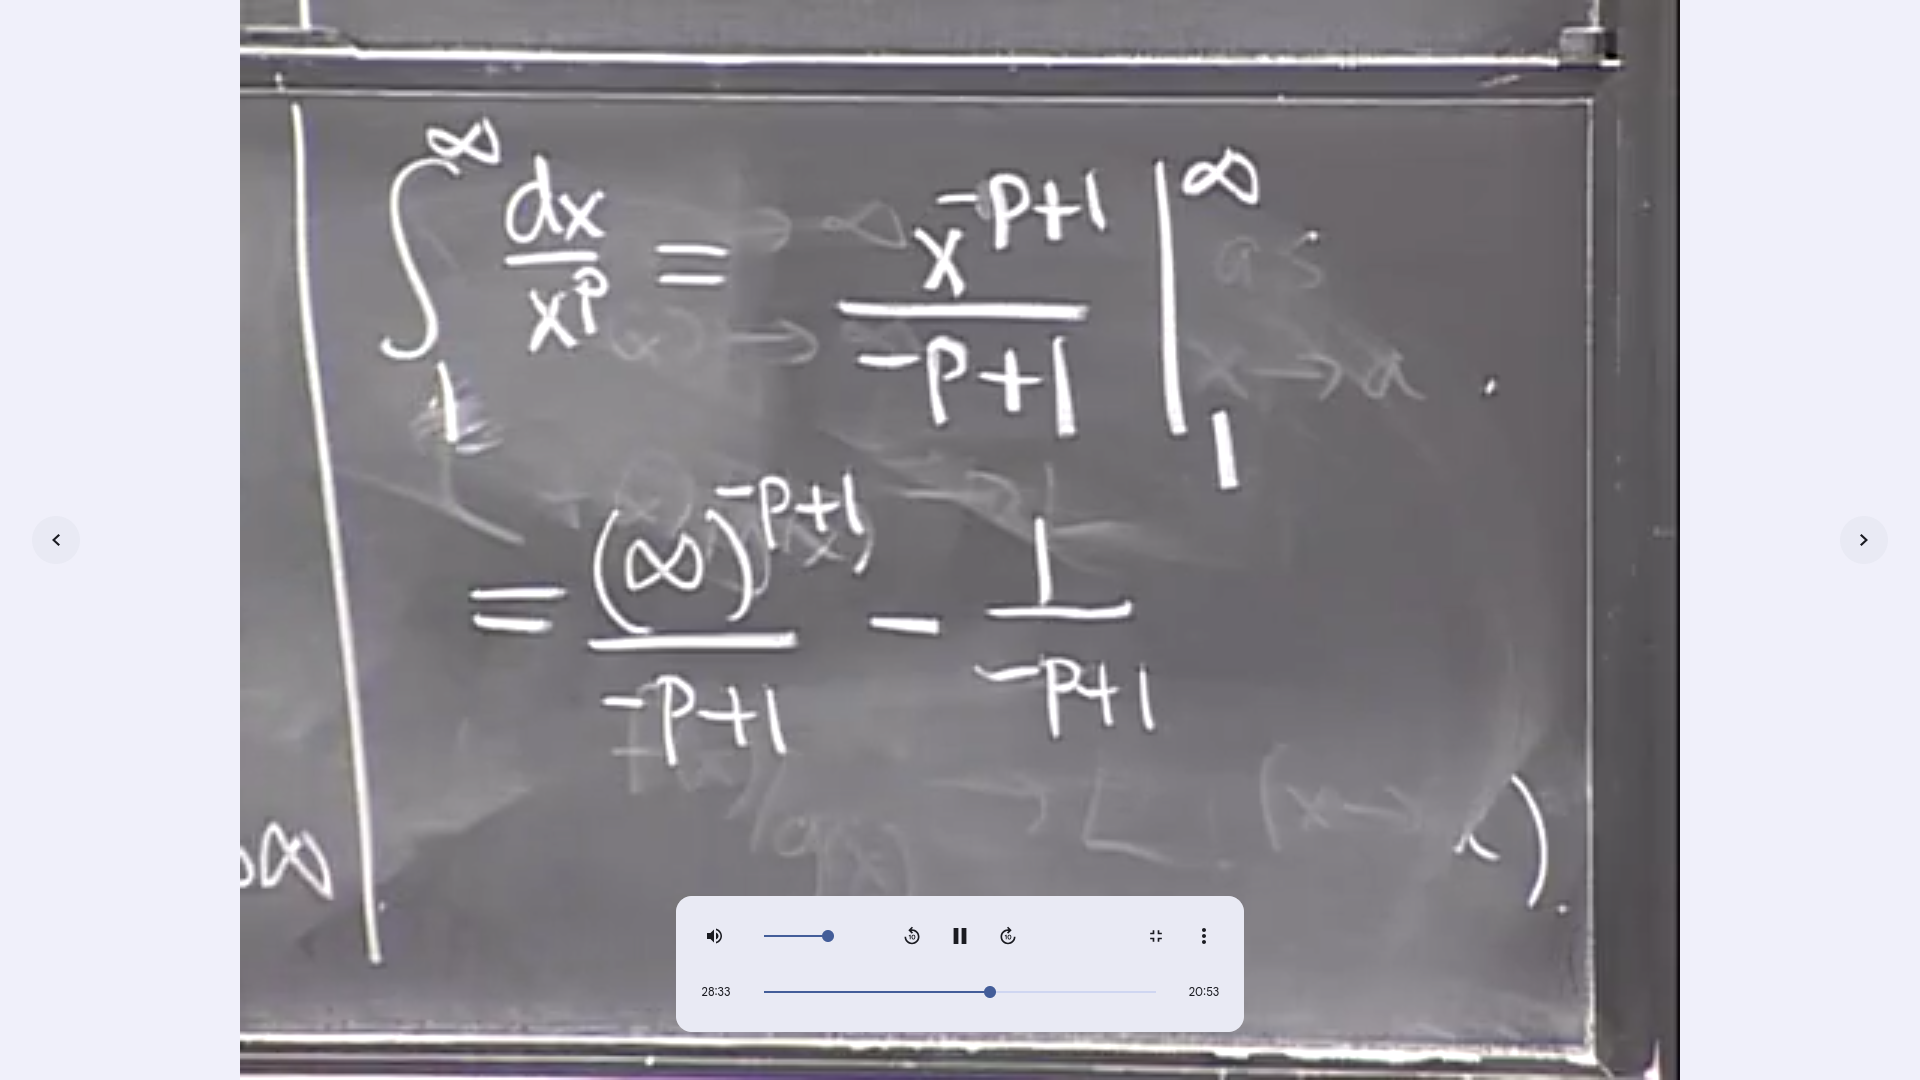 ∫₁^∞ dx/x^p = x^(-p+1)/(-p+1) |₁^∞
= (∞)^(-p+1)/(-p+1) - 1/(-p+1)
∞
28:33
20:53